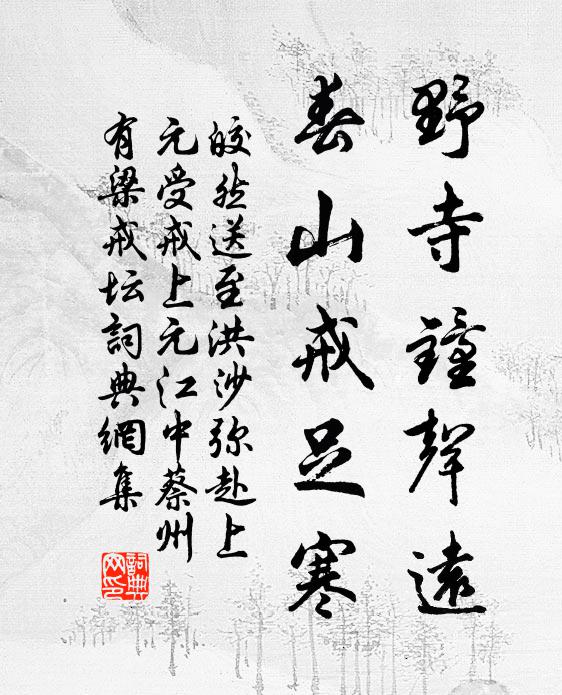 野寺鐘聲遠
春山戒足寒
皎然送至洪沙弥赴上
元受戒上元江中蔡州
有梁戒坛詞典網集
詞典
网印